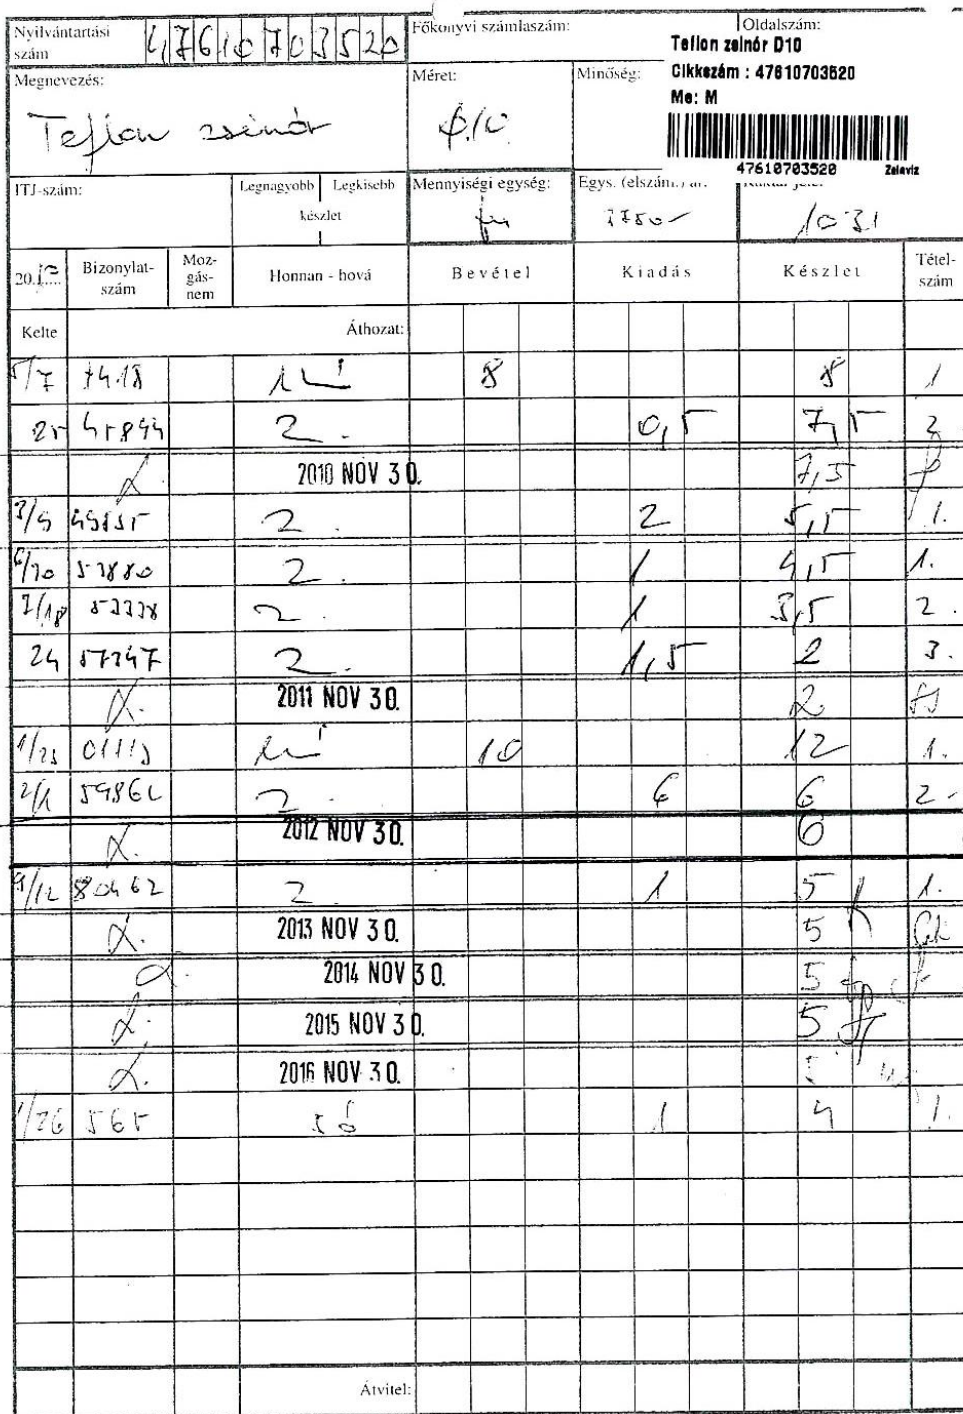 Nyilvántartási szám 47610703520 Főkönyvi számlaszám: Oldalszám:
Teflon zsinór D10
Cikkszám : 47610703520
Me: M
47610703520 Zalaviz
Megnevezés: Méret: Minőség:
Teflon zsinór
ITJ-szám: Legnagyobb Legkisebb készlet Mennyiségi egység: Egys. (elszám.) ár:
fm 1031
20. Bizonylat-szám Moz-gás-nem Honnan - hová Bevétel Kiadás Készlet Tétel-szám
Kelte Áthozat:
5/7 8 8 1
25 45844 2. 0,5 7,5 2
2010 NOV 30. 7,5
2. 2 5,5 1.
2. 1 4,5 1.
2. 1 3,5 2.
24 57347 2. 1,5 2 3.
2011 NOV 30. 2
1/25 10 12 1.
2/1 2. 6 6 2.
2012 NOV 30. 6
9/12 80462 2 1 5 1.
2013 NOV 30. 5
2014 NOV 30. 5
2015 NOV 30. 5
2016 NOV 30. 5
1/26 565 1 4 1.
Átvitel: